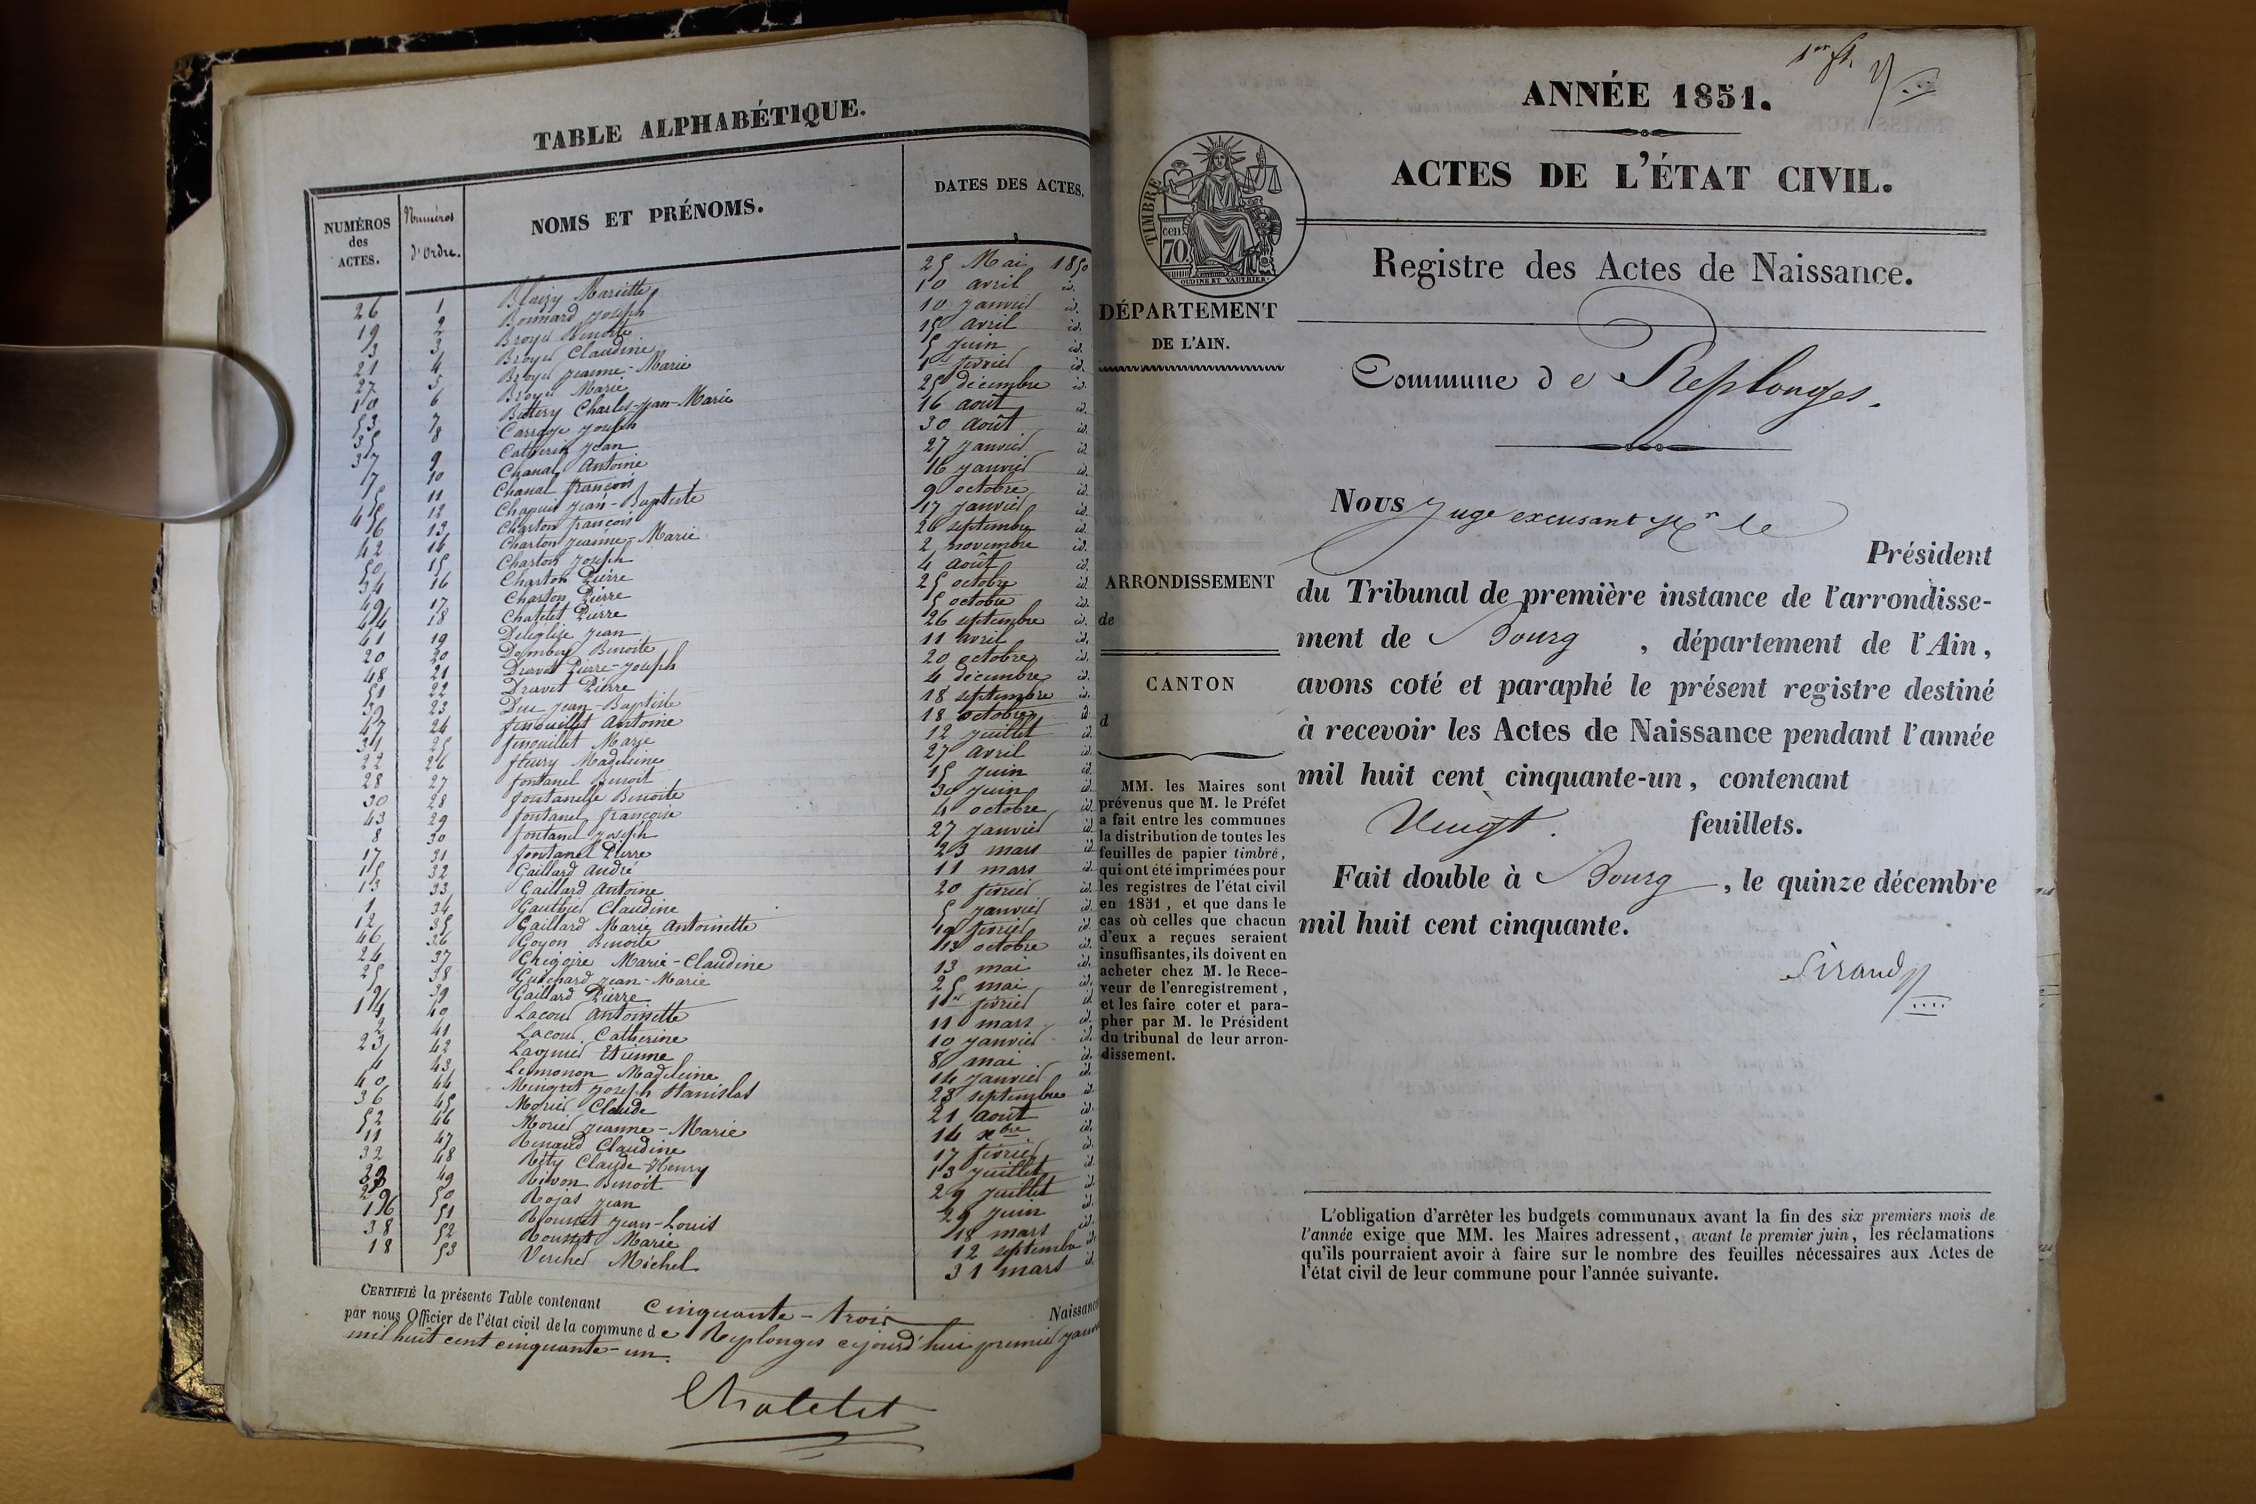 TABLE ALPHABÉTIQUE.
NUMÉROS des ACTES. Numéros d'Ordre. NOMS ET PRÉNOMS. DATES DES ACTES.
26 1 Blaizy Mariette 25 Mai 1850
19 2 Bonnard Joseph 10 avril id.
3 3 Broyer Benoite 10 Janvier id.
21 4 Broyer Claudine 15 avril id.
27 5 Broyer Jeanne-Marie 5 Juin id.
10 6 Broyer Marie 1er février id.
53 7 Buttery Charles-Jean-Marie 25 décembre id.
35 8 Carrage Joseph 16 août id.
37 9 Catherin Jean 30 août id.
7 10 Chanal Antoine 27 Janvier id.
5 11 Chanal françois 16 Janvier id.
45 12 Chapuis Jean-Baptiste 9 octobre id.
6 13 Charton françois 17 Janvier id.
42 14 Charton Jeanne-Marie 26 septembre id.
50 15 Charton Joseph 2 novembre id.
34 16 Charton Pierre 4 août id.
49 17 Charton Pierre 25 octobre id.
44 18 Chatelet Pierre 5 octobre id.
41 19 Deléglise Jean 26 septembre id.
20 20 Benoite 11 avril id.
48 21 Dravet Pierre-Joseph 20 octobre id.
51 22 Dravet Pierre 4 décembre id.
39 23 Duc Jean-Baptiste 18 septembre id.
47 24 fenouillet Antoine 18 octobre id.
31 25 fenouillet Marie 12 juillet id.
22 26 fleury Madeleine 27 avril id.
28 27 fontanel Benoit 15 Juin id.
30 28 fontanelle Benoite 30 Juin id.
43 29 fontanel françoise 4 octobre id.
8 30 fontanel Joseph 27 Janvier id.
17 31 fontanel Pierre 23 mars id.
15 32 Gaillard André 11 mars id.
13 33 Gaillard Antoine 20 février id.
1 34 Gauthier Claudine 5 Janvier id.
12 35 Gaillard Marie Antoinette 19 février id.
46 36 Goyon Benoite 13 octobre id.
24 37 Marie-Claudine 13 mai id.
25 38 Guichard Jean-Marie 25 mai id.
9 39 Gaillard Pierre 1er février id.
14 40 Lacour Antoinette 11 mars id.
2 41 Lacour Catherine 10 Janvier id.
23 42 Etienne 8 mai id.
4 43 Lemonon Madeleine 14 Janvier id.
40 44 Joseph Stanislas 23 septembre id.
36 45 Morier Claude 21 août id.
52 46 Morier Jeanne-Marie 14 xbre id.
11 47 Renaud Claudine 17 février id.
32 48 Réty Claude-Henry 13 Juillet id.
49 Rivon Benoit 29 Juillet id.
29 50 Rojas Jean 29 Juin id.
16 51 Rousset Jean-Louis 18 mars id.
38 52 Rousset Marie 12 septembre id.
18 53 Vercher Michel 31 mars id.
CERTIFIÉ la présente Table contenant cinquante-trois Naissances
par nous Officier de l'état civil de la commune de Replonges cejourd'hui premier janvier
mil huit cent cinquante-un.
Chatelet
1er ft.
ANNÉE 1851.
ACTES DE L'ÉTAT CIVIL.
TIMBRE
cen.
70
OUDINE ET VAUTHIER
Registre des Actes de Naissance.
DÉPARTEMENT
DE L'AIN.
Commune de Replonges.
ARRONDISSEMENT
de
CANTON
d
MM. les Maires sont
prévenus que M. le Préfet
a fait entre les communes
la distribution de toutes les
feuilles de papier timbré,
qui ont été imprimées pour
les registres de l'état civil
en 1851, et que dans le
cas où celles que chacun
d'eux a reçues seraient
insuffisantes, ils doivent en
acheter chez M. le Rece-
veur de l'enregistrement,
et les faire coter et para-
pher par M. le Président
du tribunal de leur arron-
dissement.
Nous Juge excusant Mr le
Président
du Tribunal de première instance de l'arrondisse-
ment de Bourg, département de l'Ain,
avons coté et paraphé le présent registre destiné
à recevoir les Actes de Naissance pendant l'année
mil huit cent cinquante-un, contenant
Vingt. feuillets.
Fait double à Bourg, le quinze décembre
mil huit cent cinquante.
Sirand
L'obligation d'arrêter les budgets communaux avant la fin des six premiers mois de
l'année exige que MM. les Maires adressent, avant le premier juin, les réclamations
qu'ils pourraient avoir à faire sur le nombre des feuilles nécessaires aux Actes de
l'état civil de leur commune pour l'année suivante.